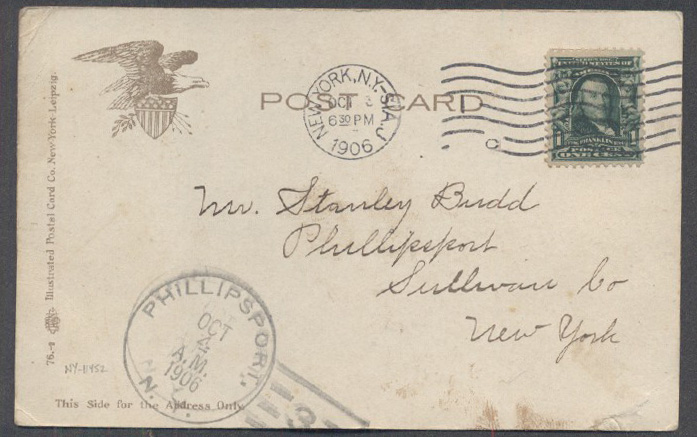 POST CARD
NEW YORK, N.Y.-STA.J
OCT 3
6 30 PM
1906
C
SERIES 1902
UNITED STATES OF
AMERICA
1 1
FRANKLIN
POSTAGE
ONE CENT
Mr. Stanley Budd
Phillipsport
Sullivan Co
New York
PHILLIPSPORT,
OCT
4
A.M.
1906
N.
3
76.-2 Illustrated Postal Card Co. New-York Leipzig.
NY-11452
This Side for the Address Only.